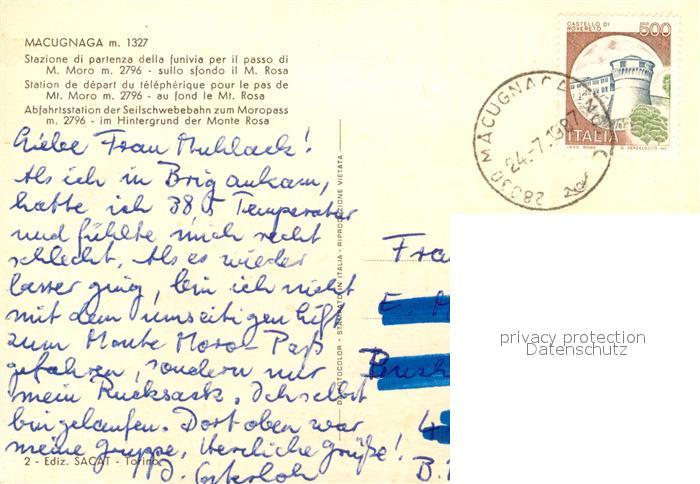 MACUGNAGA m. 1327
Stazione di partenza della funivia per il passo di
M. Moro m. 2796 - sullo sfondo il M. Rosa
Station de départ du téléphérique pour le pas de
Mt. Moro m. 2796 - au fond le Mt. Rosa
Abfahrtsstation der Seilschwebebahn zum Moropass
m. 2796 - im Hintergrund der Monte Rosa
Liebe Frau Muhlack!
Als ich in Brig ankam,
hatte ich 38,5 Temperatur
und fühlte mich recht
schlecht. Als es wieder
besser ging, bin ich nicht
mit dem umseitigen Lift
zum Monte Moro-Paß
gefahren, sondern nur
mein Rucksack. Ich selbst
bin gelaufen. Dort oben war
meine Gruppe. Herzliche Grüße!
2 - Ediz. SACAT - Torino
STAMPATO IN ITALIA - RIPRODUZIONE VIETATA
CASTELLO DI
ROVERETO
500
ITALIA
28030 MACUGNAGA
24-7-1987
Frau
E. M
4
B.
privacy protection
Datenschutz